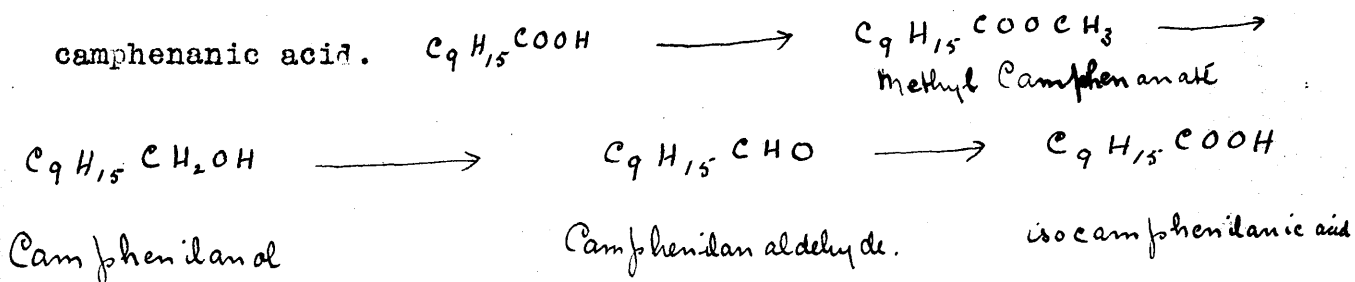 camphenanic acid. C₉H₁₅COOH ⟶ C₉H₁₅COOCH₃ ⟶
Methyl Camphenanate
C₉H₁₅CH₂OH ⟶ C₉H₁₅CHO ⟶ C₉H₁₅COOH
Camphenilanol Camphenilan aldehyde. isocamphenilanic acid